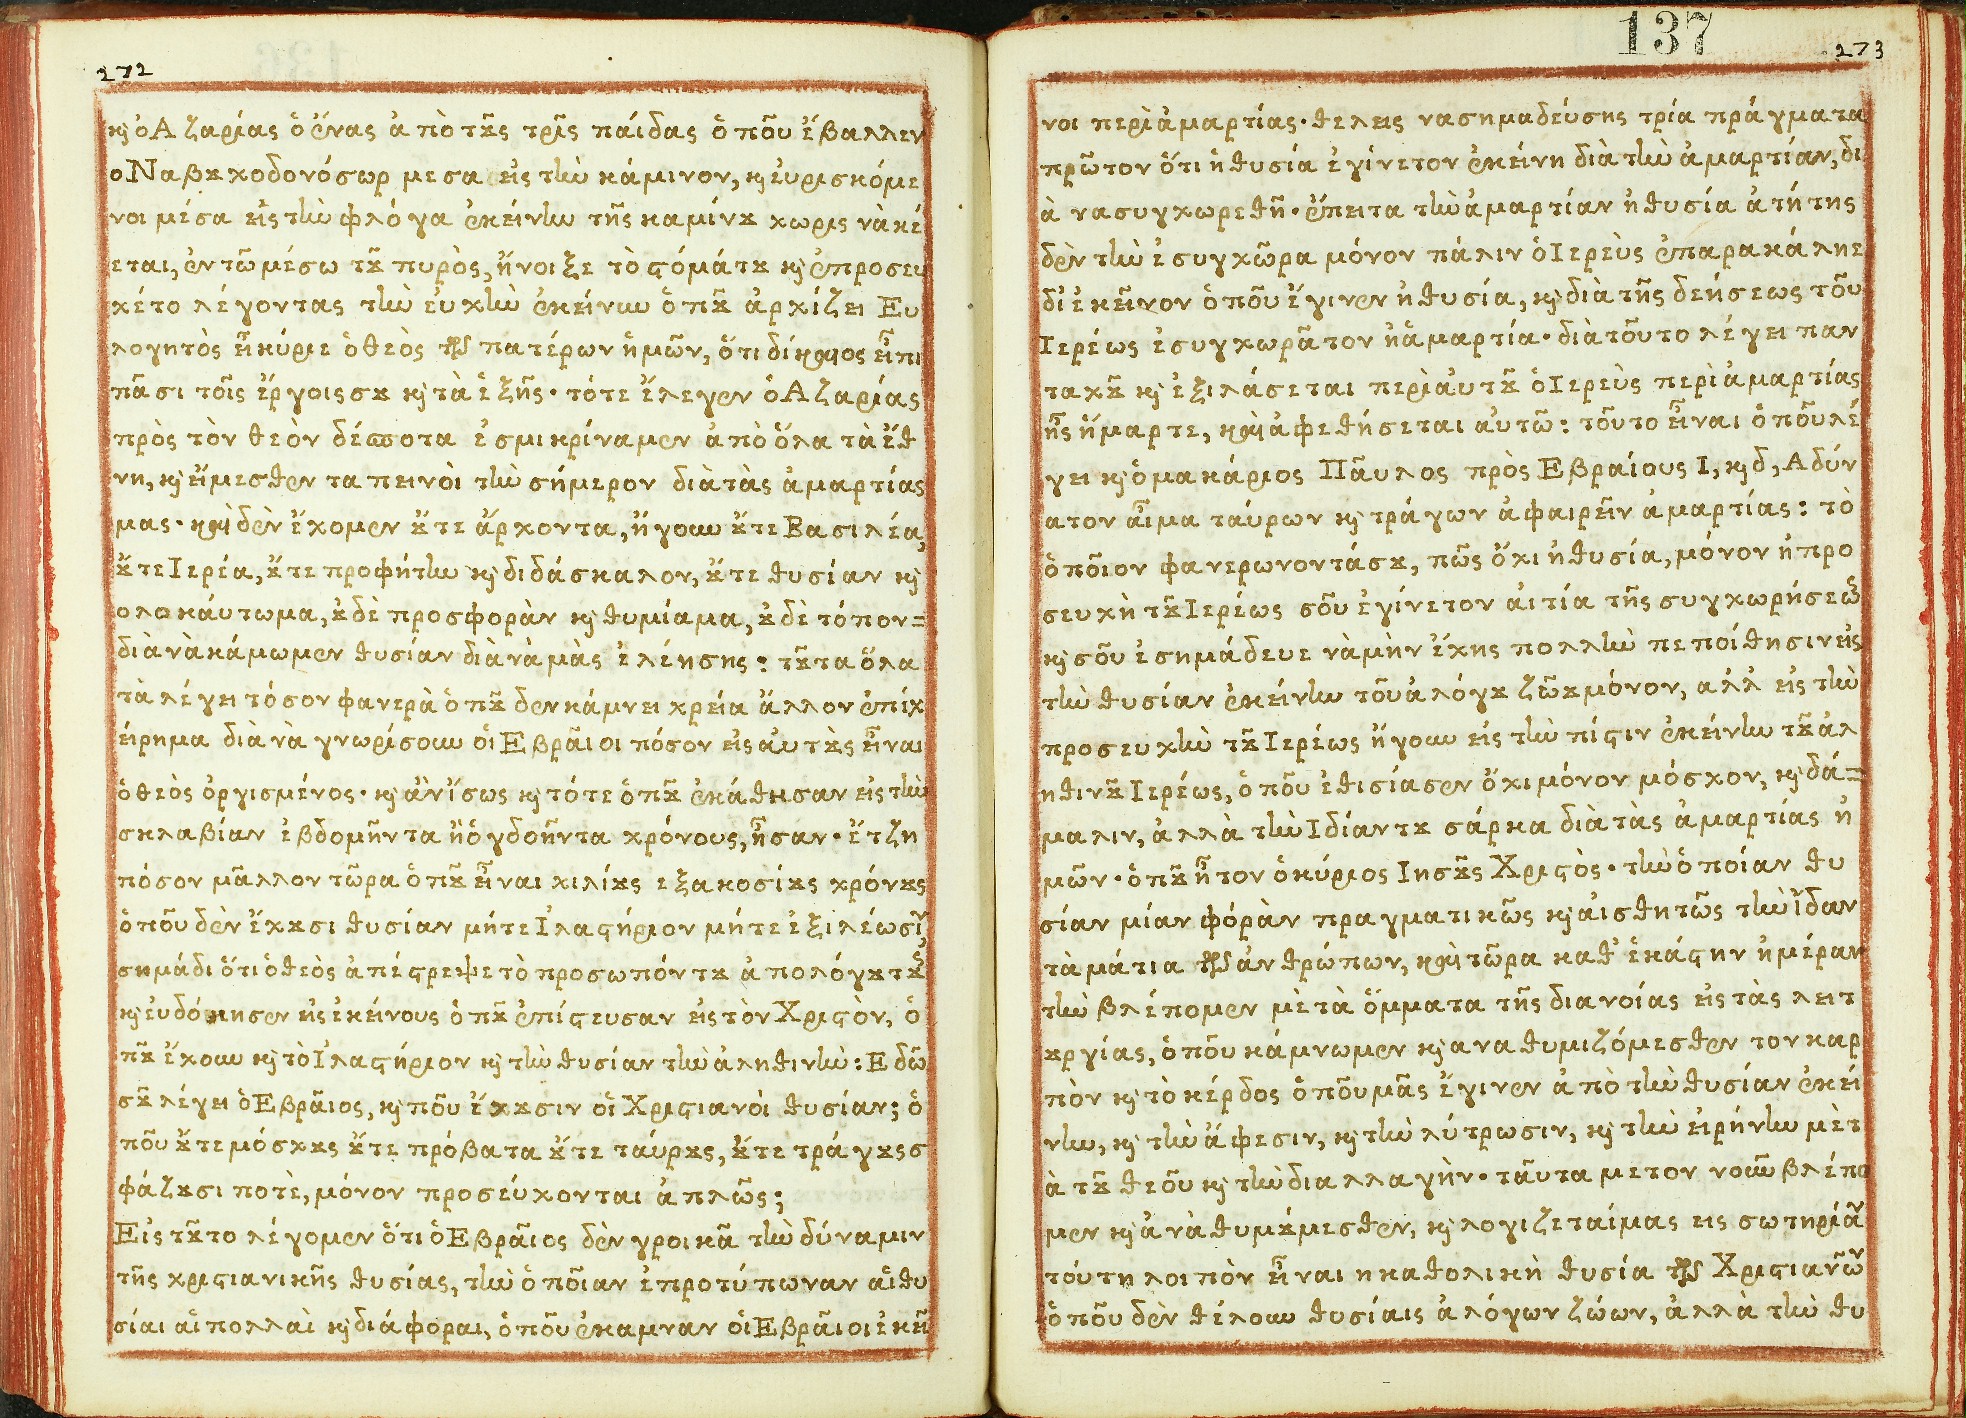 272
κὶ ὁ Αζαρίας ὁ ἕνας ἀπὸ τοὺς τρῖς πάιδας ὁποῦ ἔβαλλεν
ο Ναβουχοδονόσωρ μεσα εἰς τὴν κάμινον, κὶ ἐυρισκόμε
νοι μέσα εἰς τὴν φλόγα ἐκείνην τῆς καμίνου χωρις νὰ κέ
εται, ἐν τῶ μέσω τοῦ πυρὸς, ἤνοιξε τὸ στόμάτου κὶ ἐπροσευ
χέτο λέγοντας τὴν ἐυχὴν ἐκείνην ὁποῦ ἀρχίζει Ευ
λογητὸς εἶ κύριε ὁ θεὸς τῶν πατέρων ἡμῶν, ὅτι δίκαιος εἶ πι
πᾶσι τοῖς ἔργοις σου κὶ τὰ ἑξῆς· τότε ἔλεγεν ὁ Αζαρίας
πρὸς τὸν θεὸν δέσποτα ἐσμικρίναμεν ἀπὸ ὅλα τὰ ἔθ
νη, κὶ εἴμεσθεν ταπεινοὶ τὴν σήμερον διὰ τὰς ἁμαρτίας
μας· καὶ δὲν ἔχομεν οὔτε ἄρχοντα, ἤγουν οὔτε Βασιλέα,
οὔτε Ιερέα, οὔτε προφήτην κὶ διδάσκαλον, οὔτε θυσίαν κὶ
ολοκάυτωμα, οὐδὲ προσφορὰν κὶ θυμίαμα, οὐδὲ τόπον=
διὰ νὰ κάμωμεν θυσίαν διὰ νὰ μὰς ἐλέησης: τοῦτα ὅλα
τὰ λέγει τόσον φανερὰ ὁποῦ δεν κάμνει χρεία ἄλλον ἐπίχ
είρημα διὰ νὰ γνωρίσουν ὁι Εβρᾶιοι πόσον εἰς αὐτοὺς εἶναι
ὁ θεὸς ὀργισμένος· κὶ ἂν ἴσως κὶ τότε ὁποῦ ἐκάθησαν εἰς τὴν
σκλαβίαν ἑβδομῆντα ἢ ὀγδοῆντα χρόνους, ἦσαν· ἔτζη
πόσον μᾶλλον τῶρα ὁποῦ εἶναι χιλίους εξακοσίους χρόνους
ὁποῦ δὲν ἔχουσι θυσίαν μήτε Ἱλαστήριον μήτε ἐξιλέωσιν
σημάδι ὅτι ὁ θεὸς ἀπέστρεψε τὸ προσωπόν του ἀπολόγου τους
κὶ ἐυδόκησεν εἰς ἐκείνους ὁποῦ ἐπίστευσαν εἰς τὸν Χριστὸν, ὁ
ποῦ ἔχουν κὶ τὸ Ἱλαστήριον κὶ τὴν θυσίαν τὴν ἀληθινὴν: Εδῶ
σοῦ λέγει ὁ Εβρᾶιος, κὶ ποῦ ἔχουσιν ὁι Χριστιανὸι θυσίαν; ὁ
ποῦ οὔτε μόσχους οὔτε πρόβατα οὔτε ταύρους, οὔτε τράγους σ
φάζουσι ποτὲ, μόνον προσεύχονται ἁπλῶς;
Εἰς τοῦτο λέγομεν ὅτι ὁ Εβρᾶιος δὲν γροικᾶ τὴν δύναμιν
τῆς χριστιανικῆς θυσίας, τὴν ὁποῖαν ἐπροτύπωναν αἱ θυ
σίαι αἱ πολλαὶ κὶ διάφοραι, ὁποῦ ἐκαμναν ὁι Εβρᾶιοι ἐκεῖ
137
273
νοι περὶ ἁμαρτίας· θελεις να σημαδέυσης τρία πράγματα
πρῶτον ὅτι ἡ θυσία ἐγίνετον ἐκείνη διὰ τὴν ἁμαρτίαν, δι
ὰ να συγχωρεθῆ· ἔπειτα τὴν ἁμαρτίαν ἡ θυσία ἀτήτης
δὲν τὴν ἐσυγχῶρα μόνον πάλιν ὁ Ιερεὺς ἐπαρακάληε
δἰ ἐκεῖνον ὁποῦ ἔγινεν ἡ θυσία, κὶ διὰ τῆς δεήσεως τοῦ
Ιερέως ἐσυγχωρᾶτον ἡ ἁμαρτία· διὰ τοῦτο λέγει παν
ταχοῦ κὶ ἐξιλάσεται περὶ ἀυτοῦ ὁ Ιερεὺς περὶ ἁμαρτίας
ἧς ἥμαρτε, καὶ ἀφεθήσεται αὐτῶ: τοῦτο εἶναι ὁποῦ λέ
γει κὶ ὁ μακάριος Πᾶυλος πρὸς Εβραίους Ι, κὶ δ, Αδύν
ατον αἷμα ταύρων κὶ τράγων ἀφαιρεῖν ἁμαρτίας: τὸ
ὁποῖον φανερωνοντάσου, πῶς ὄχι ἡ θυσία, μόνον ἡ προ
σευχὴ τοῦ Ιερέως σοῦ ἐγίνετον ἀιτία τῆς συγχωρήσεως
κὶ σοῦ ἐσημάδευε νὰ μὴν ἔχης πολλὴν πεποίθησιν εἰς
τὴν θυσίαν ἐκείνην τοῦ ἀλόγου ζώου μόνον, αλλ εἰς τὴν
προσευχὴν τοῦ Ιερέως ἤγουν εἰς τὴν πίστιν ἐκείνην τοῦ ἀλ
ηθινοῦ Ιερέως, ὁποῦ ἐθισίασεν ὄχι μόνον μόσχον, κὶ δά=
μαλιν, ἀλλὰ τὴν Ιδίαν του σάρκα διὰ τὰς ἁμαρτίας ἡ
μῶν· ὁποῦ ἦτον ὁ κύριος Ιησοῦς Χριστὸς· τὴν ὁποίαν θυ
σίαν μίαν φόρὰν πραγματικῶς κὶ ἀισθητῶς τὴν ἴδαν
τὰ μάτια τῶν ἀνθρώπων, καὶ τῶρα καθ' ἑκάστην ἡμέραν
τὴν βλέπομεν μὲ τὰ ὄμματα τῆς διανοίας εἰς τὰς λειτ
ουργίας, ὁποῦ κάμνωμεν κὶ αναθυμιζόμεσθεν τον καρ
πὸν κὶ τὸ κέρδος ὁποῦ μᾶς ἔγινεν ἀπὸ τὴν θυσίαν ἐκεί
νην, κὶ τὴν ἄφεσιν, κὶ τὴν λύτρωσιν, κὶ τὴν εἰρήνην μὲτ
ὰ τοῦ θεοῦ κὶ τὴν διαλλαγὴν· ταῦτα με τον νοῦν βλέπο
μεν κὶ ἀνὰθυμούμεσθεν, κὶ λογιζεταίμας εις σωτηρίαν
τούτη λοιπὸν εἶναι η καθολικὴ θυσία τῶν Χριστιανῶν
ὁποῦ δὲν θέλουν θυσίαις ἀλόγων ζώων, ἀλλὰ τὴν θυ